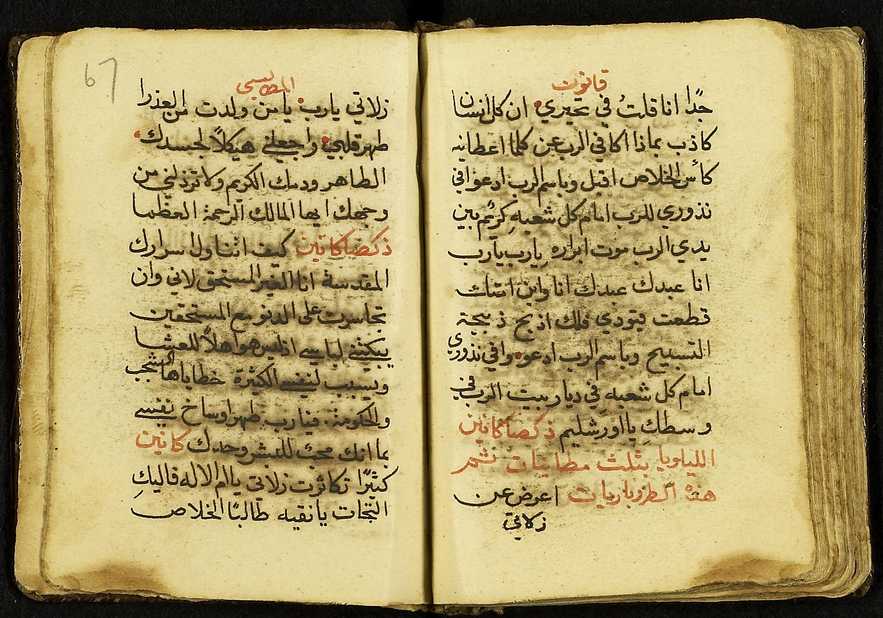 قانون
جدًا انا قلتُ في تحيري ان كل انسان
كاذب بماذا اكافي الرب عن كلما اعطانيه
كأس الخلاص اقبل وباسم الرب ادعو افي
نذوري للرب امام كل شعبهِ كريم بين
يدي الرب موت ابراره يارب يارب
انا عبدك عبدك انا وابن امتك
قطعت قيودي فلك اذبح ذبيحة
التسبيح وباسم الرب ادعو وافي نذوري
امام كل شعبه في ديار بيت الرب في
وسطكِ يا اورشليم ذكصا كانين
الليلويا بثلث مطانيات ثم
هذه الطروباريات اعرض عن
زلاتي
المطاليبسي
زلاتي يارب يا من ولدت من العذرا
طهر قلبي واجعلني هيكلاً لجسدك
الطاهر ودمك الكريم ولا ترذلني من
وجهك ايها المالك الرحمة العظما
ذكصا كانين كيف اتناول اسرارك
المقدسة انا الغير المستحق لاني وان
تجاسرت على الدنو مع المستحقين
يبكتني لباسي اذ ليس هو اهلاً للعشا
وبسبب لنفسي الكثيرة خطاياها الشجب
والحكومة فيارب طهر اوساخ نفسي
بما انك محب للبشر وحدك كانين
كثيرًا تكاثرت زلاتي يا ام الاله فاليكِ
التجات يا نقيه طالبًا الخلاص
67